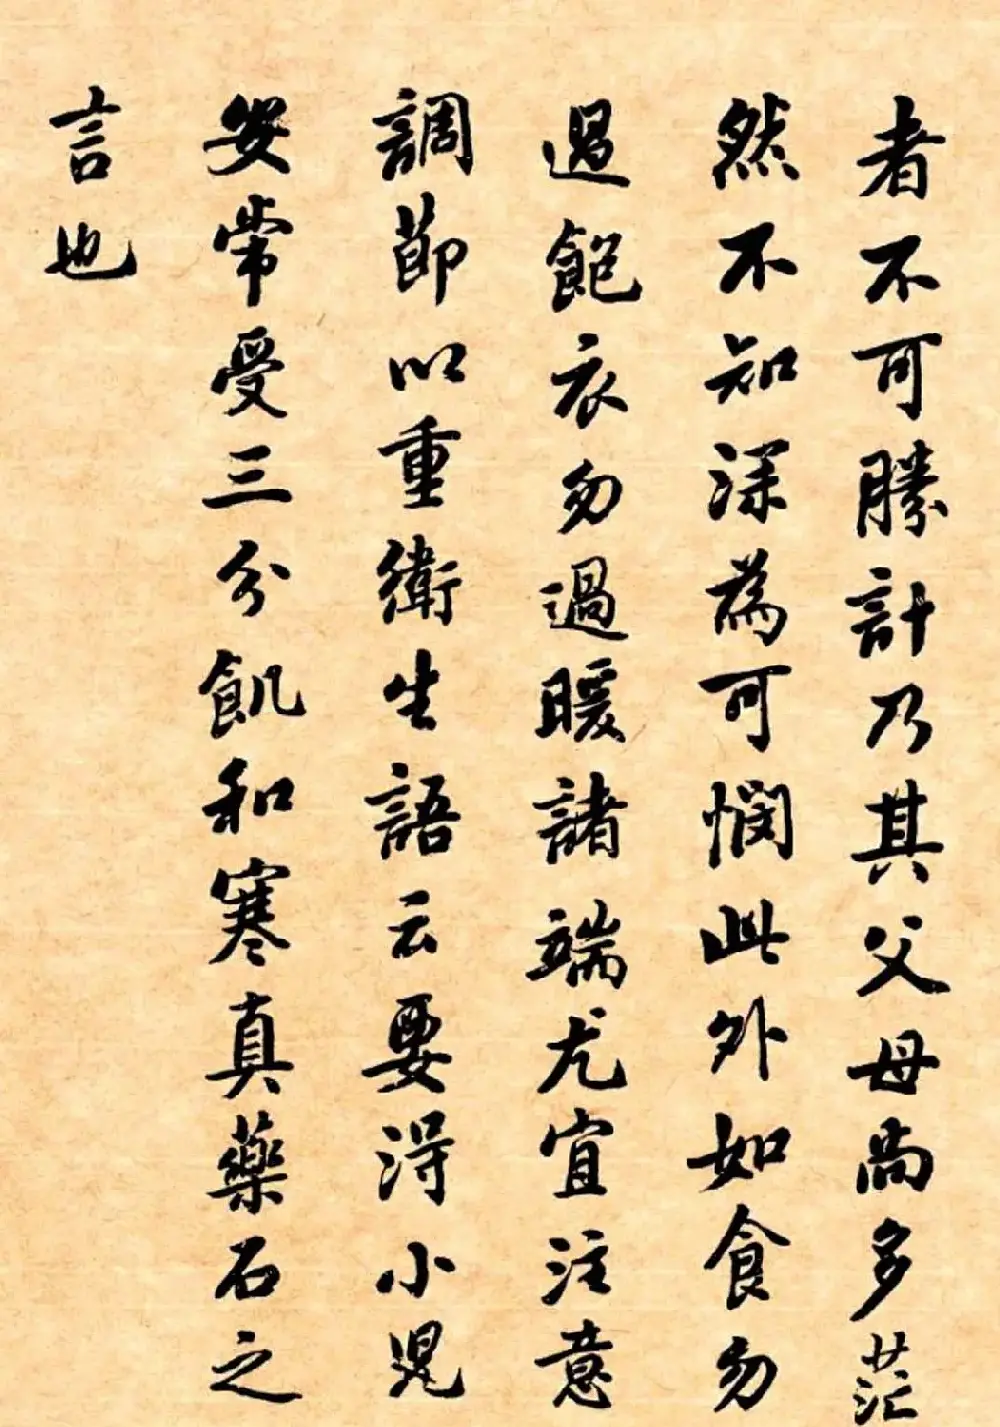 者不可勝計乃其父母尚多茫
然不知深為可憫此外如食勿
過飽衣勿過暖諸端尤宜注意
調節以重衛生語云要得小兒
安常受三分飢和寒真藥石之
言也